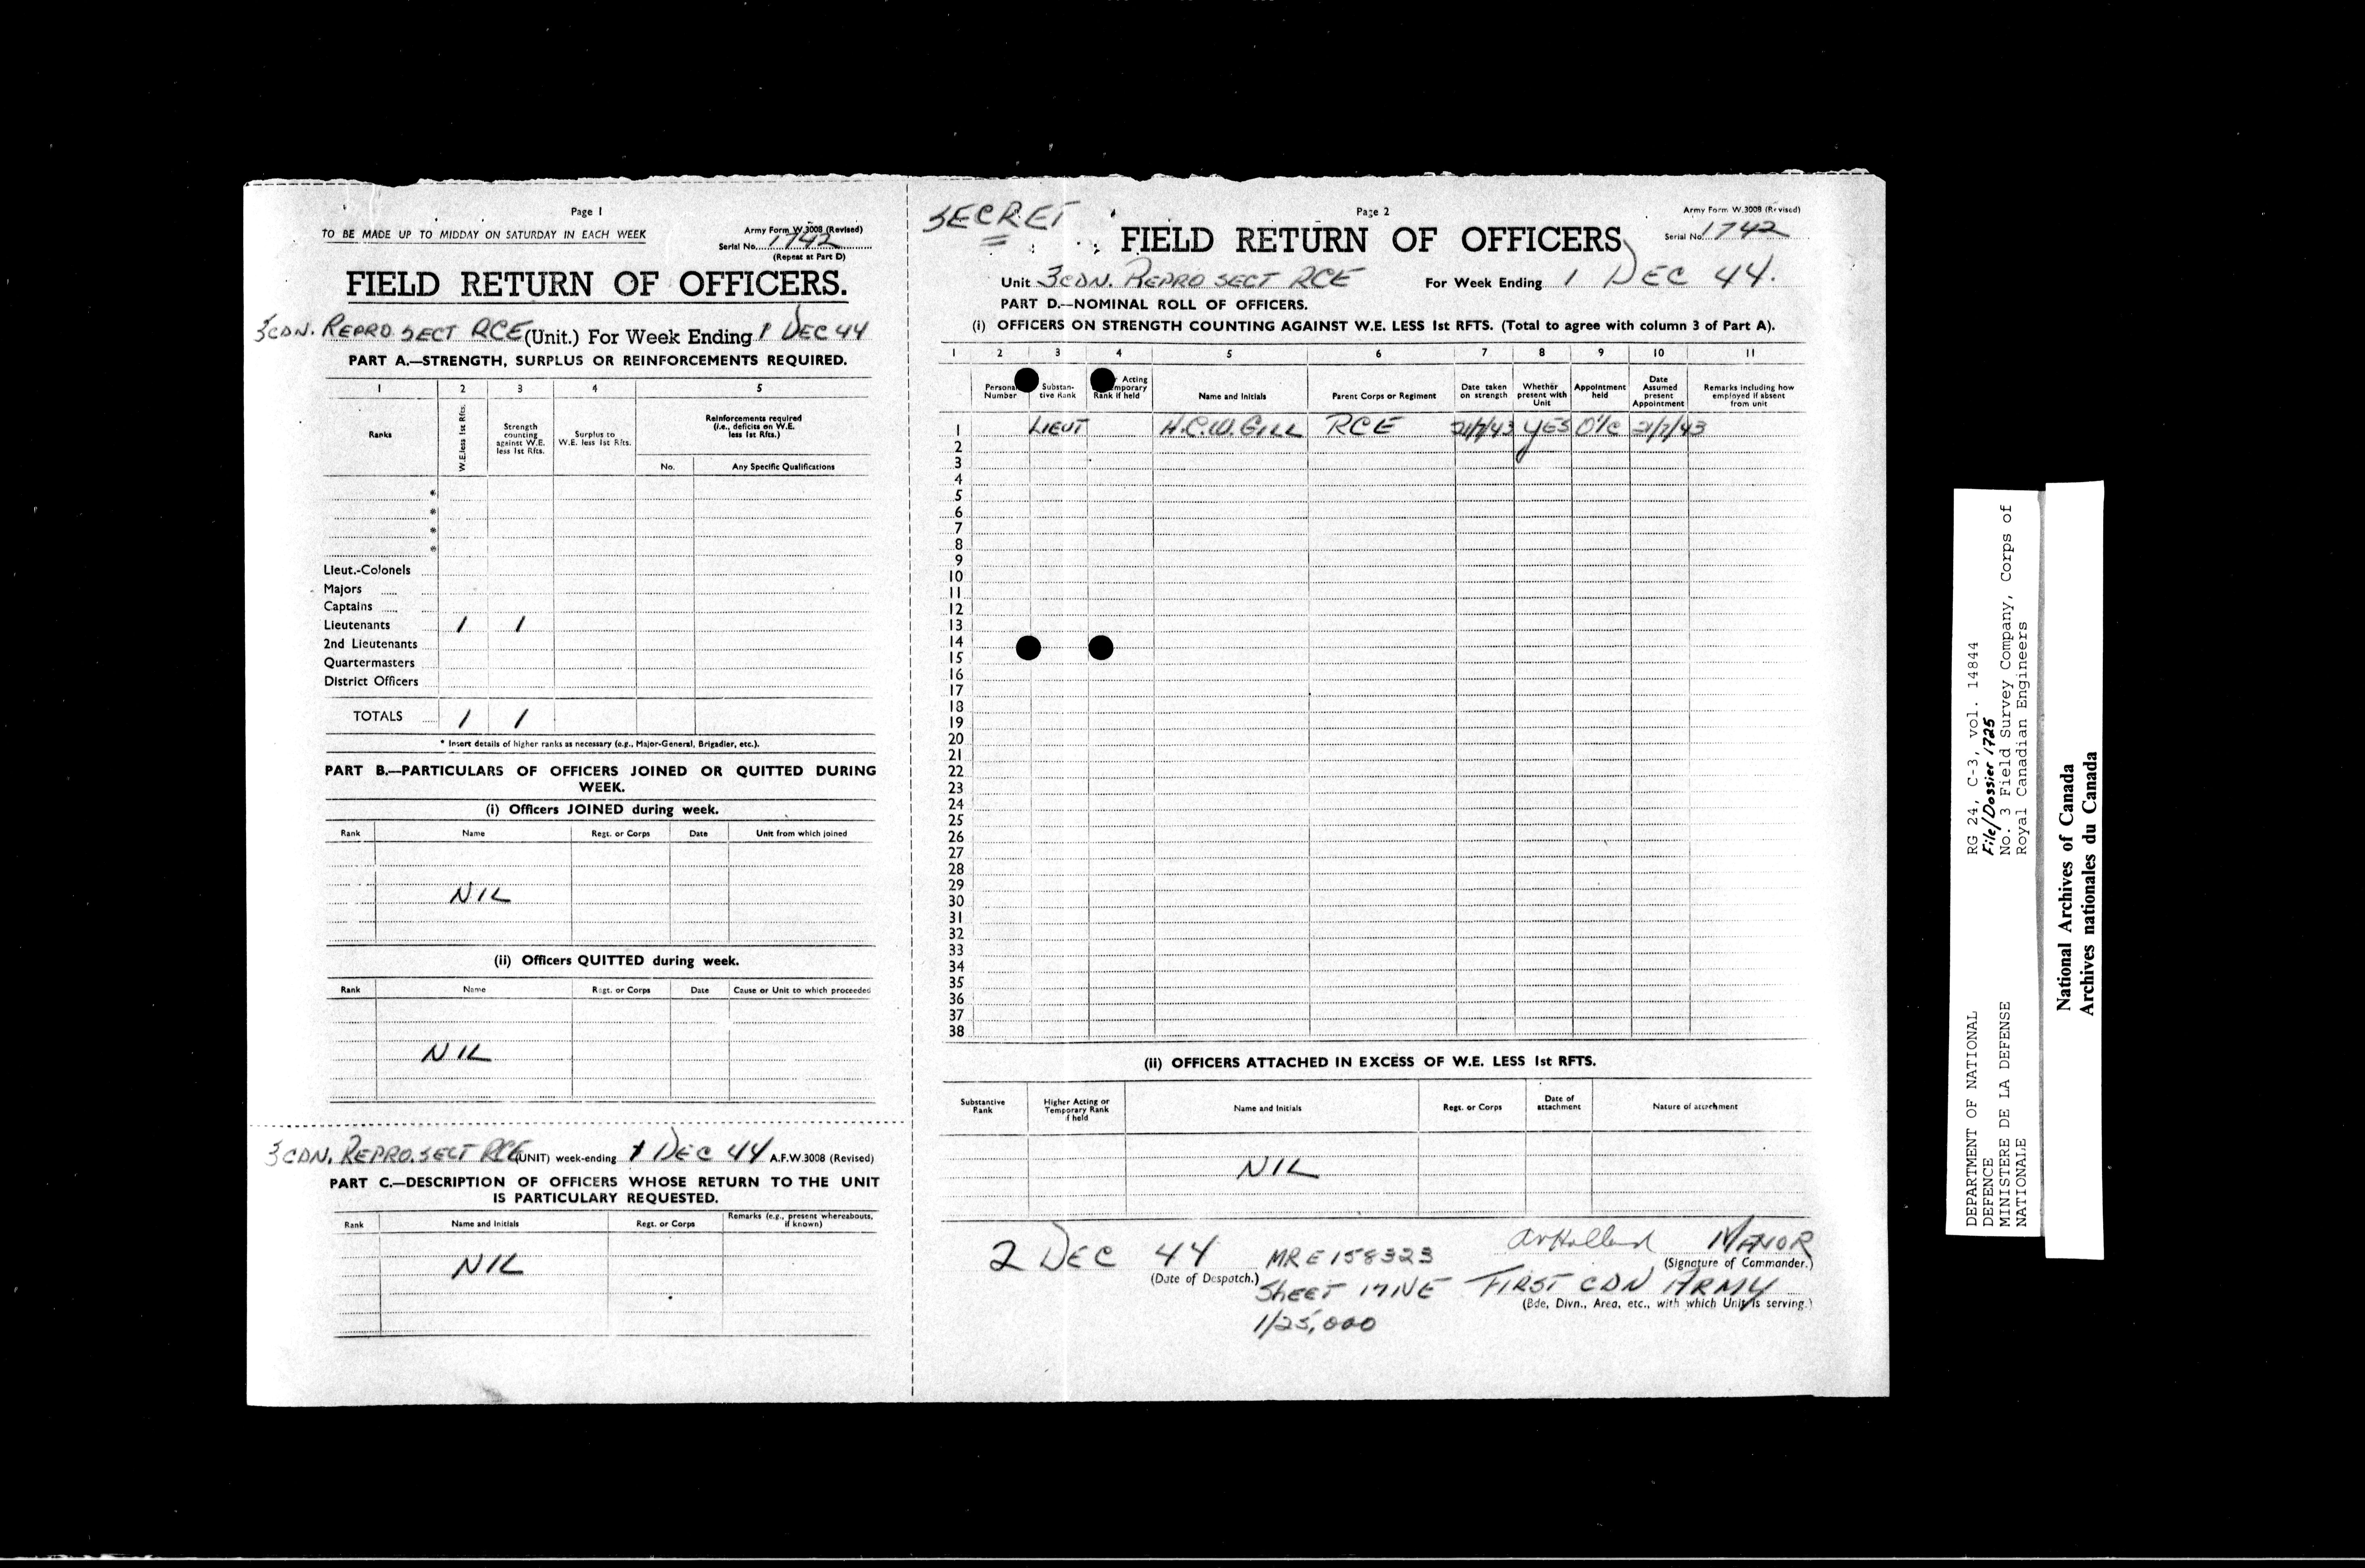 Page 1
TO BE MADE UP TO MIDDAY ON SATURDAY IN EACH WEEK
Army Form W.3008 (Revised)
Serial No. 1742
(Repeat at Part D)
FIELD RETURN OF OFFICERS.
3 CDN. REPRO SECT RCE (Unit.) For Week Ending 1 DEC 44
PART A.—STRENGTH, SURPLUS OR REINFORCEMENTS REQUIRED.
1 2 3 4 5
Ranks
W.E. less 1st Rfts.
Strength counting against W.E. less 1st Rfts.
Surplus to W.E. less 1st Rfts.
Reinforcements required (i.e., deficits on W.E. less 1st Rfts.)
No. Any Specific Qualifications
*
*
*
*
Lieut.-Colonels
Majors
Captains
Lieutenants 1 1
2nd Lieutenants
Quartermasters
District Officers
TOTALS 1 1
* Insert details of higher ranks as necessary (e.g., Major-General, Brigadier, etc.).
PART B.—PARTICULARS OF OFFICERS JOINED OR QUITTED DURING
WEEK.
(i) Officers JOINED during week.
Rank Name Regt. or Corps Date Unit from which joined
NIL
(ii) Officers QUITTED during week.
Rank Name Regt. or Corps Date Cause or Unit to which proceeded
NIL
3 CDN. REPRO. SECT RCE (UNIT) week-ending 1 DEC 44 A.F.W.3008 (Revised)
PART C.—DESCRIPTION OF OFFICERS WHOSE RETURN TO THE UNIT
IS PARTICULARY REQUESTED.
Rank Name and Initials Regt. or Corps Remarks (e.g., present whereabouts, if known)
NIL
SECRET
Page 2
Army Form W.3008 (Revised)
FIELD RETURN OF OFFICERS
Serial No. 1742
Unit 3 CDN. REPRO SECT RCE For Week Ending 1 DEC 44.
PART D.—NOMINAL ROLL OF OFFICERS.
(i) OFFICERS ON STRENGTH COUNTING AGAINST W.E. LESS 1st RFTS. (Total to agree with column 3 of Part A).
1 2 3 4 5 6 7 8 9 10 11
Personal Number
Substantive Rank
Acting mporary Rank if held
Name and Initials
Parent Corps or Regiment
Date taken on strength
Whether present with Unit
Appointment held
Date Assumed present Appointment
Remarks including how employed if absent from unit
1 LIEUT H.C.W. GILL RCE 21/7/43 YES O i/c 21/7/43
2
3
4
5
6
7
8
9
10
11
12
13
14
15
16
17
18
19
20
21
22
23
24
25
26
27
28
29
30
31
32
33
34
35
36
37
38
(ii) OFFICERS ATTACHED IN EXCESS OF W.E. LESS 1st RFTS.
Substantive Rank Higher Acting or Temporary Rank if held Name and Initials Regt. or Corps Date of attachment Nature of attachment
NIL
2 DEC 44 MR E158323 MAJOR
(Date of Despatch.) (Signature of Commander.)
SHEET 17NE FIRST CDN ARMY
(Bde, Divn., Area, etc., with which Unit is serving.)
1/25,000
DEPARTMENT OF NATIONAL DEFENCE
MINISTERE DE LA DEFENSE NATIONALE
RG 24, C-3, vol. 14844
File/Dossier 1725
No. 3 Field Survey Company, Corps of
Royal Canadian Engineers
National Archives of Canada
Archives nationales du Canada